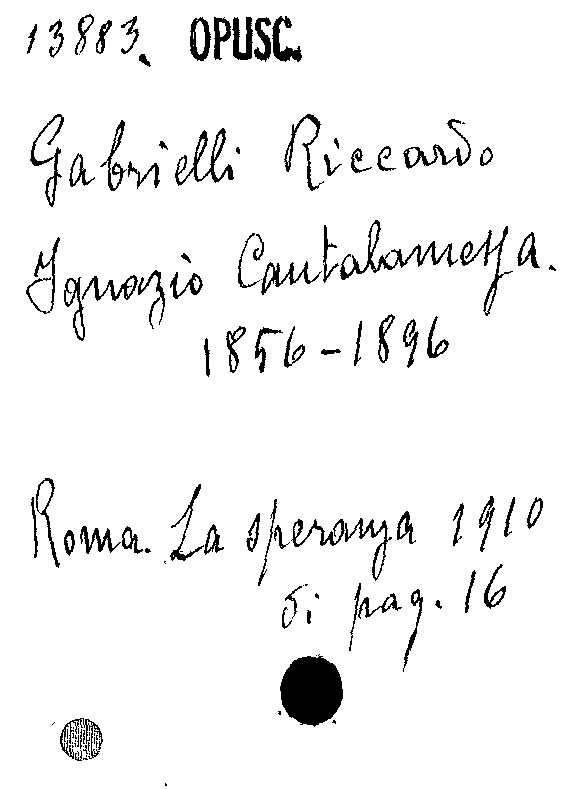 13883. OPUSC.
Gabrielli Riccardo
Ignazio Cantalamessa.
1856-1896
Roma. La speranza 1910
di pag. 16